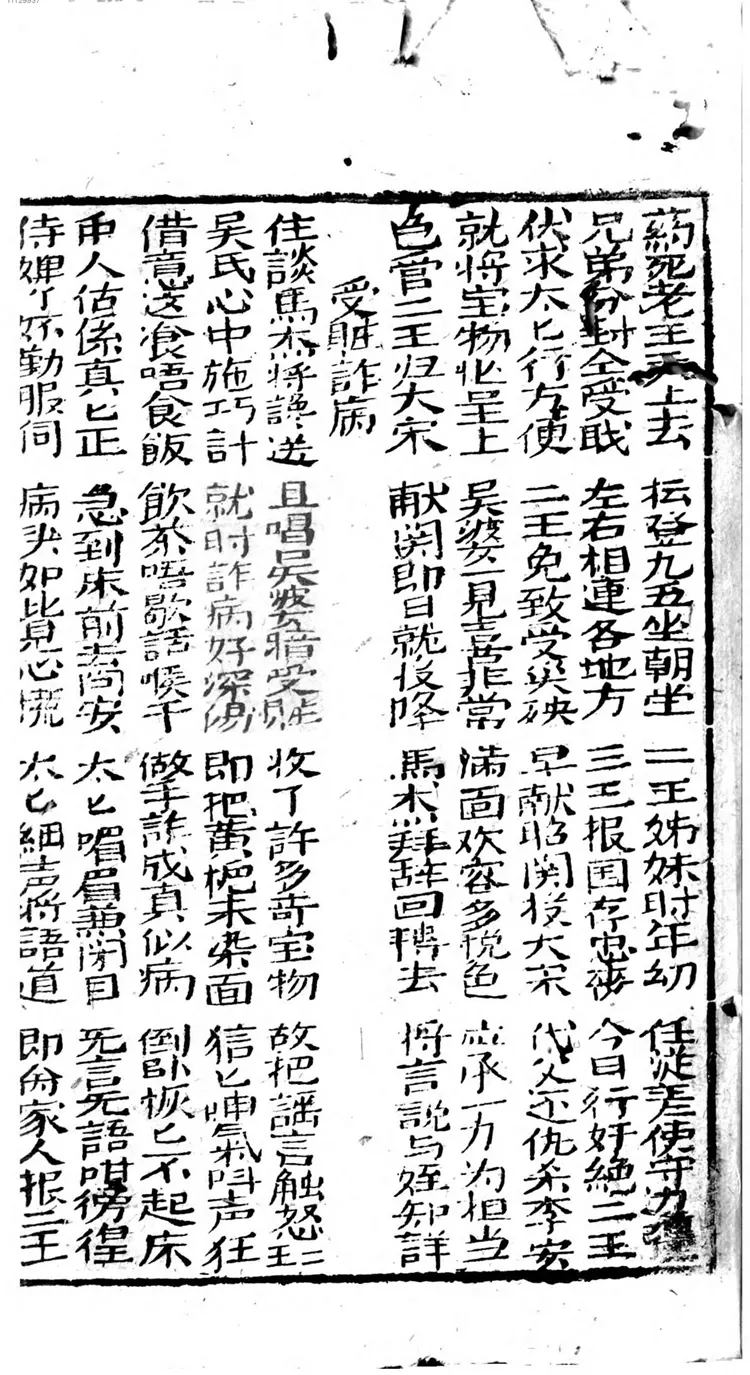 药死老王天上去 抎登九五坐朝堂 二王姊妹时年幼 任従差使守力强
兄弟分封仝受戢 左右相連各地方 三王报国存忠 今日行奸絶二王
伏求太匕行方便 二王免致受灾殃 早献昭関投大宋 代父还仇杀李安
就将宝物忙呈上 吴婆一見喜非常 满面欢容多悦色 应承一力为担当
包管二王归大宋 献関即日就投降 馬杰拜辞回轉去 将言説与姪知詳
受賍詐病
住談馬杰将讒送 且唱吴婆暗受賍 收了許多奇宝物 故把謡言触怒王
吴氏心中施巧計 就时詐病好深傷 即把黄栀来染面 狺匕呻氣叫声狂
借意送飡唔食飯 飲茶唔歇話喉干 做手詐成真似病 倒卧恹匕不起床
甲人估係真匕正 急到床前去问安 太匕嵋眉兼闭目 旡言旡語咁徬徨
侍婢丫环勤服伺 病势如此見心慌 太匕細声将語道 即命家人报二王